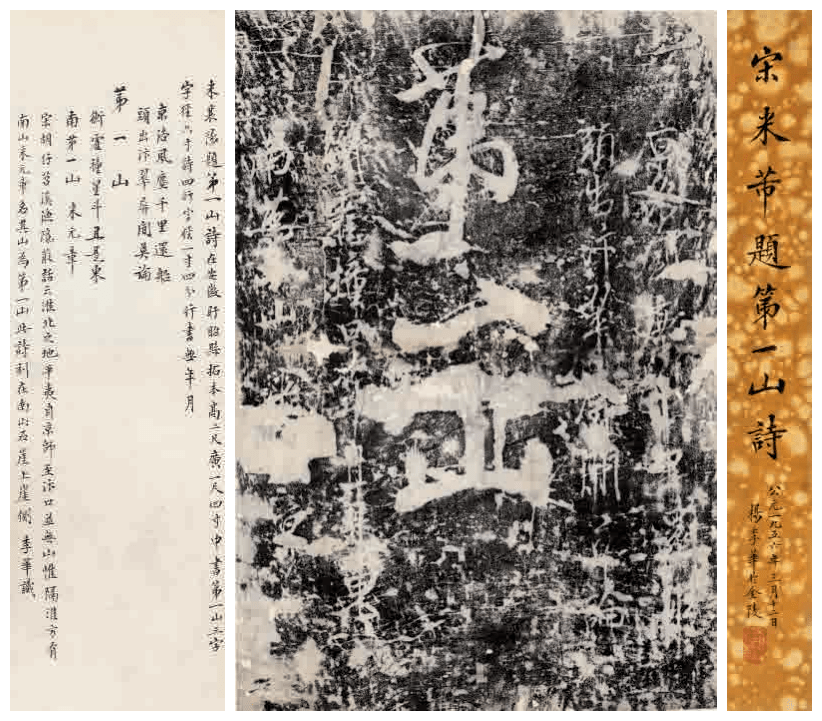 宋米芾題第一山詩
公元一九五六年三月十二日
楊季華於金陵
頭出汴翠
第一山
米襄陽題第一山詩在安徽盱眙縣拓本高二尺廣一尺四寸中書第一山三字
字徑六寸詩四行字徑一寸四分行書無年月
京洛風塵千里還船
頭出汴翠屏間莫論
第一山
衡霍撞星斗且是東
南第一山 米元章
宋胡仔苕溪漁隱叢話云淮北之地平夷自京師至汴口並無山惟隔淮方有
南山米元章名其山為第一山此詩刻在南山石崖上崖側 季華識